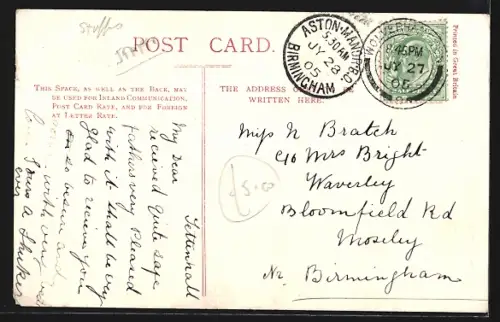 Staffs
POST CARD.
THIS SPACE, AS WELL AS THE BACK, MAY
BE USED FOR INLAND COMMUNICATION,
POST CARD RATE, AND FOR FOREIGN
AT LETTER RATE.
THE ADDRESS
WRITTEN HERE.
ASTON-MANOR
5.30AM
JY 28
05
BIRMINGHAM
WOLVERHAMPTON
8.45PM
JY 27
05
Printed in Great Britain
Tettenhall
My Dear
recieved quite safe
Fathers very Pleased
with it shall be very
Glad to recieve you
with very
Yours
ever
£5.00
Miss N Bratch
C/o Mrs Bright
Waverley
Bloomfield Rd
Moseley
Nr Birmingham